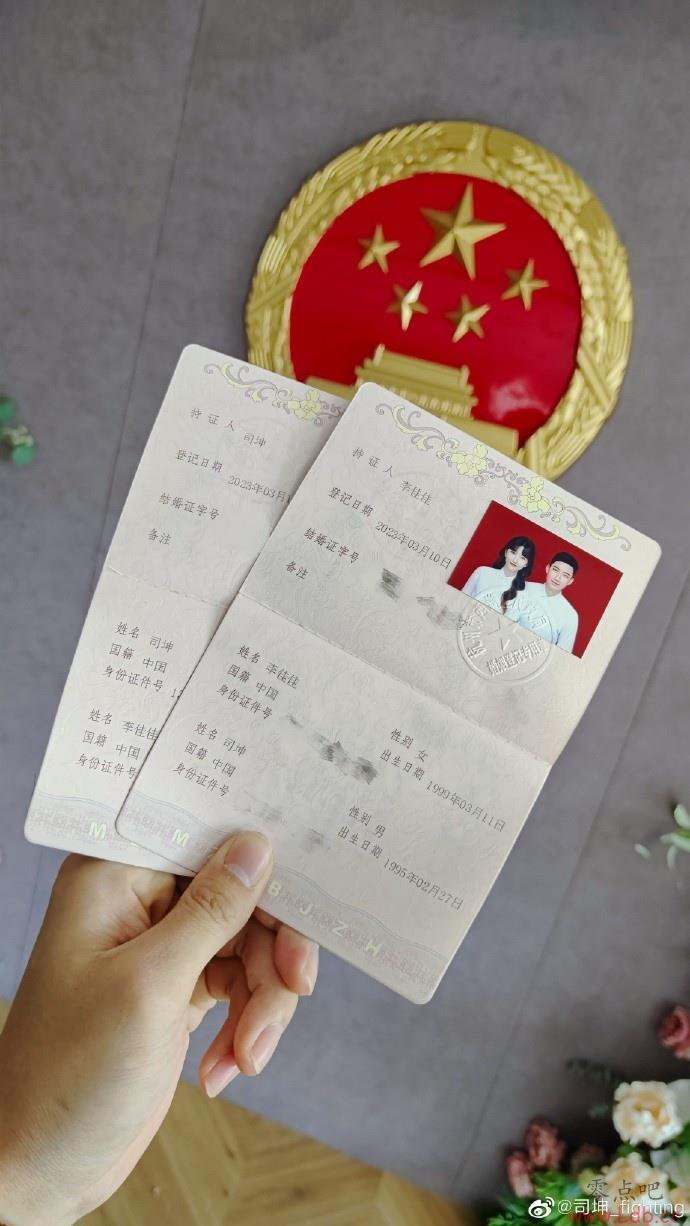 持证人 司坤
登记日期 2023年03月1
结婚证字号
备注
姓名 司坤
国籍 中国
身份证件号 1
姓名 李佳佳
国籍 中国
身份证件号
M
持证人 李佳佳
登记日期 2023年03月10日
结婚证字号
备注
姓名 李佳佳 性别 女
国籍 中国 出生日期 1999年03月11日
身份证件号
姓名 司坤 性别 男
国籍 中国 出生日期 1995年02月27日
身份证件号
M B J Z H
婚姻登记专用章
零点吧
@司坤_fighting